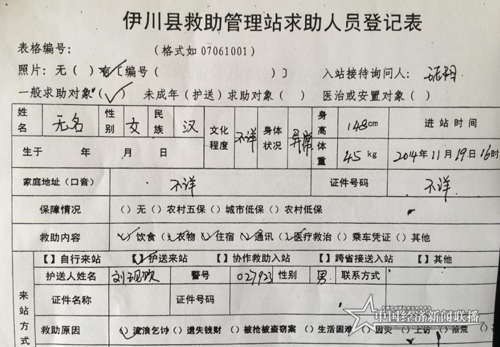 伊川县救助管理站求助人员登记表
表格编号: (格式如 07061001)
照片: 无( ) 有[编号( )] 入站接待询问人:
一般求助对象(√) 未成年(护送)求助对象( ) 医治或安置对象( )
姓名 无名 性别 女 民族 汉 文化程度 不详 身体状况 异常 身高 148cm 进站时间
生于 年 月 日 体重 45kg 2014年11月19日16时
家庭地址(口音) 不详 证件号码 不详
保障情况 ()无 ()农村五保 ()城市低保 ()农村低保
救助内容 (√)饮食 (√)衣物 (√)住宿 (√)通讯 (√)医疗救治 ()乘车凭证 ()其他
来站方式 【】自行来站 【√】护送来站 【】协作救助入站 【】跨省接送入站
护送人姓名 刘 警号 027923 性别 男 联系方式
证件名称 证件号码
救助原因 (√)流浪乞讨 ()遗失钱财 ()被抢被盗窃案 ()生活困难 ()因灾 ()上访 ()拾荒
中国经济新闻联播